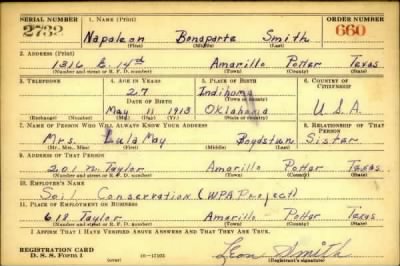 SERIAL NUMBER 1. NAME (Print) ORDER NUMBER
2733 Napoleon Bonaparte Smith 660
(First) (Middle) (Last)
2. ADDRESS (Print)
1316 E. 14th Amarillo Potter Texas
(Number and street or R. F. D. number) (Town) (County) (State)
3. TELEPHONE 4. AGE IN YEARS 5. PLACE OF BIRTH 6. COUNTRY OF CITIZENSHIP
27 Indihoma
DATE OF BIRTH (Town or county)
May 11 1913 Oklahoma U.S.A.
(Exchange) (Number) (Mo.) (Day) (Yr.) (State or country)
7. NAME OF PERSON WHO WILL ALWAYS KNOW YOUR ADDRESS 8. RELATIONSHIP OF THAT PERSON
Mrs. Lula May Boydstun Sister
(Mr., Mrs., Miss) (First) (Middle) (Last)
9. ADDRESS OF THAT PERSON
201 N. Taylor Amarillo Potter Texas
(Number and street or R. F. D. number) (Town) (County) (State)
10. EMPLOYER'S NAME
Soil Conservation (WPA Project)
11. PLACE OF EMPLOYMENT OR BUSINESS
618 Taylor Amarillo Potter Texas
(Number and street or R. F. D. number) (Town) (County) (State)
I AFFIRM THAT I HAVE VERIFIED ABOVE ANSWERS AND THAT THEY ARE TRUE.
REGISTRATION CARD
D. S. S. Form 1 16—17105 Leon Smith
(Registrant's signature)